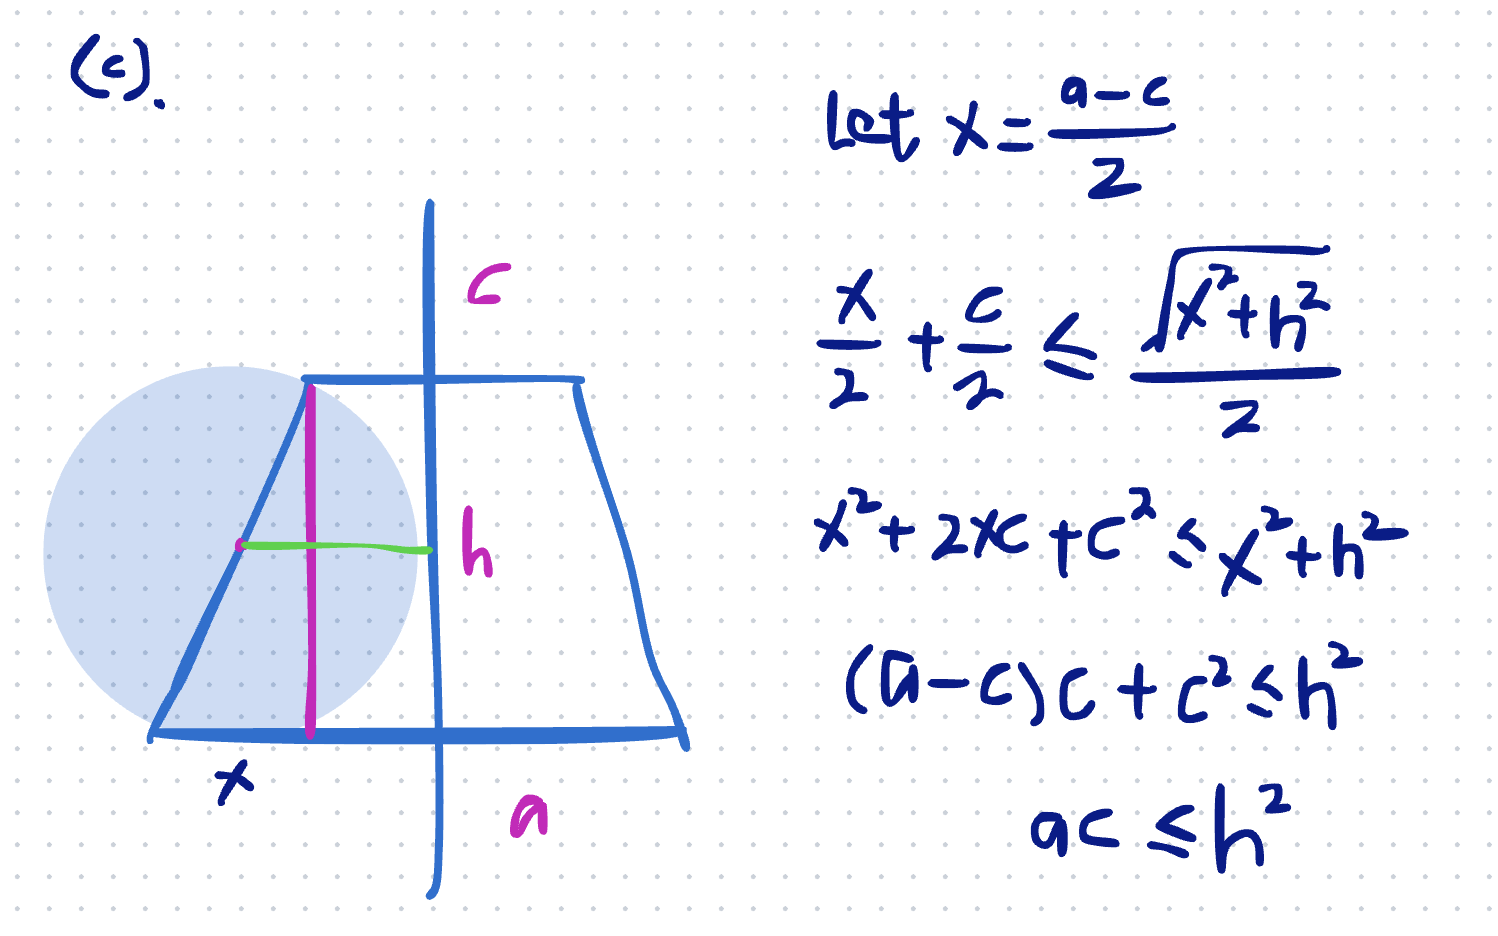 (c).
Let x = (a-c)/2
c
x/2 + c/2 ≤ √(x²+h²)/2
h
x² + 2xc + c² ≤ x² + h²
(a-c)c + c² ≤ h²
x
a
ac ≤ h²